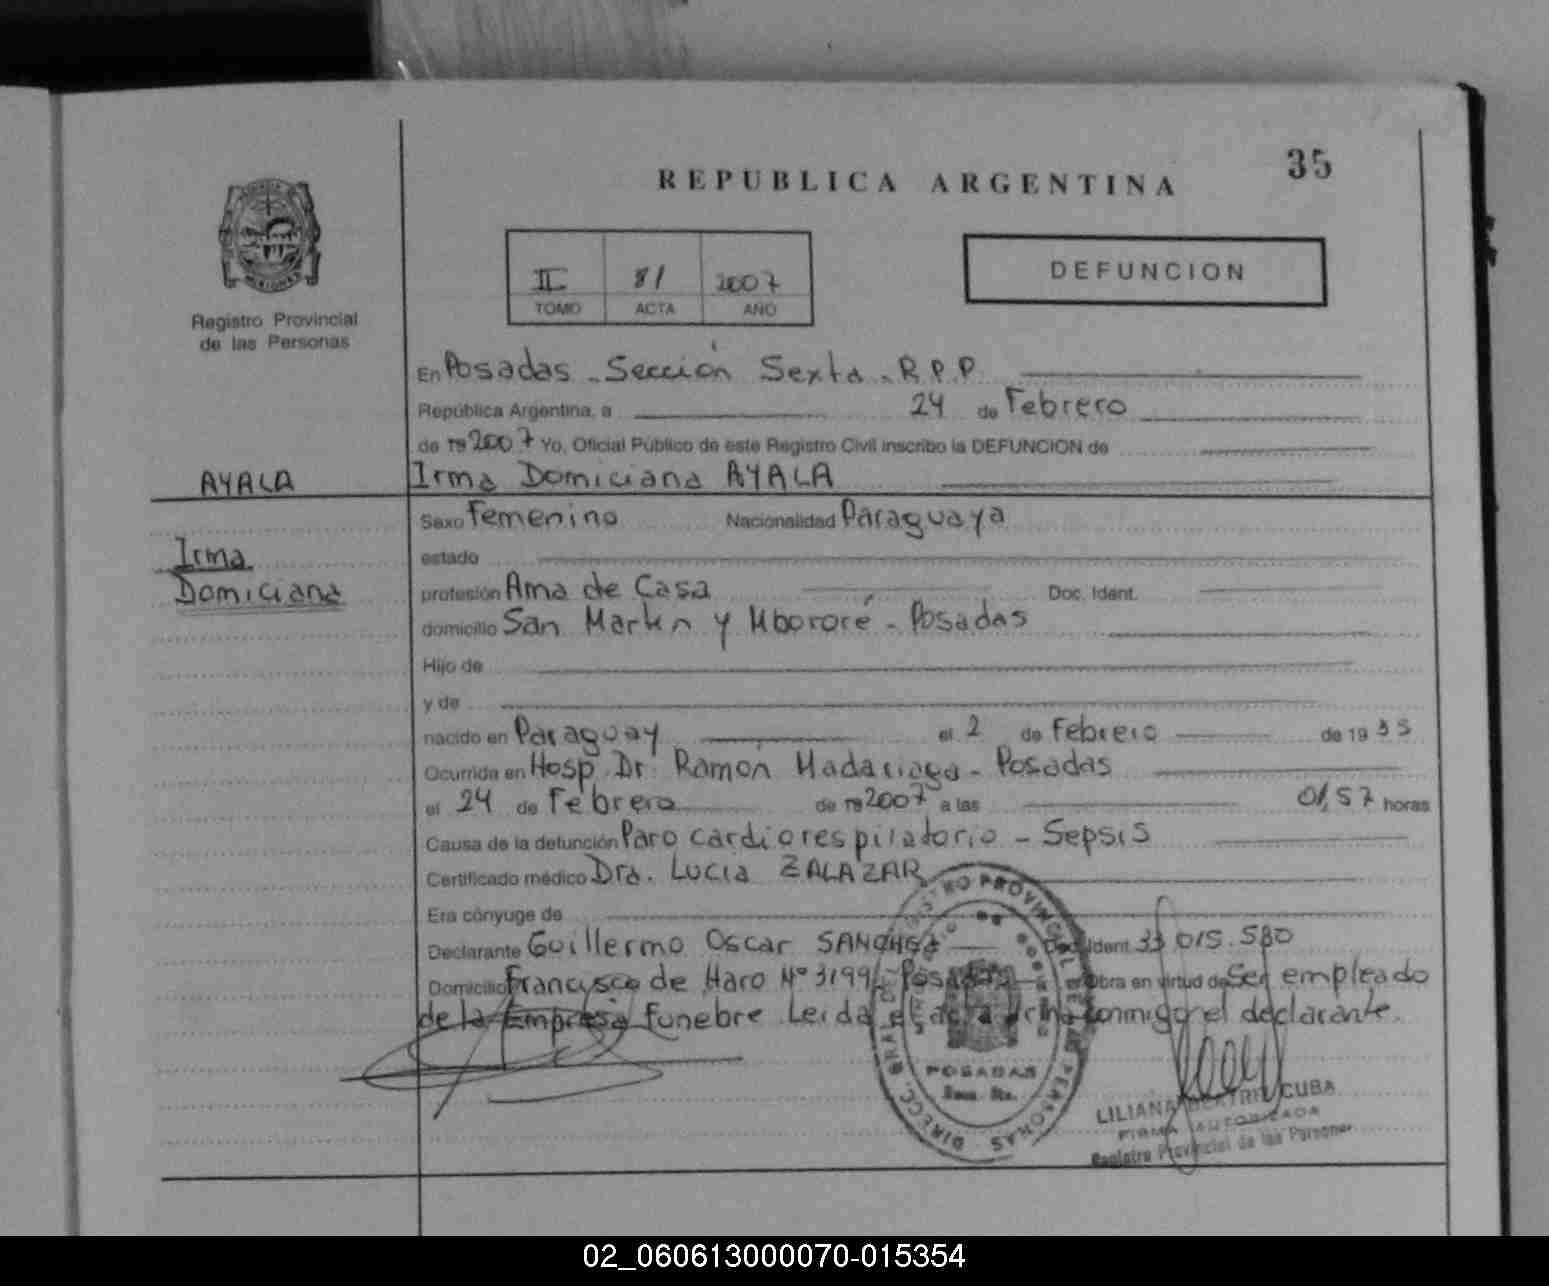 35
REPUBLICA ARGENTINA
Registro Provincial
de las Personas
II 81 2007
TOMO ACTA AÑO
DEFUNCION
En Posadas - Sección Sexta - R.P.P.
República Argentina, a 24 de Febrero
de 19 2007 Yo, Oficial Público de este Registro Civil inscribo la DEFUNCION de
AYALA
Irma Domiciana AYALA
Irma
Domiciana
Sexo Femenino Nacionalidad Paraguaya
estado
profesión Ama de Casa Doc. Ident.
domicilio San Martin y Mbororé - Posadas
Hijo de
y de
nacido en Paraguay el 2 de Febrero de 19 35
Ocurrida en Hosp. Dr. Ramón Madariaga - Posadas
el 24 de Febrero de 19 2007 a las 01,57 horas
Causa de la defunción Paro cardiorespiratorio - Sepsis
Certificado médico Dra. Lucia ZALAZAR
Era cónyuge de
Declarante Guillermo Oscar Doc. Ident. 33 015.580
Domicilio Francisco de Haro Nº 3199 - Posadas Obra en virtud de Ser empleado
de la Empresa Funebre. Leida el acta conmigo el declarante.
POSADAS
LILIANA BEATRIZ CUBA
FIRMA AUTORIZADA
Registro Provincial de las Personas
02_060613000070-015354